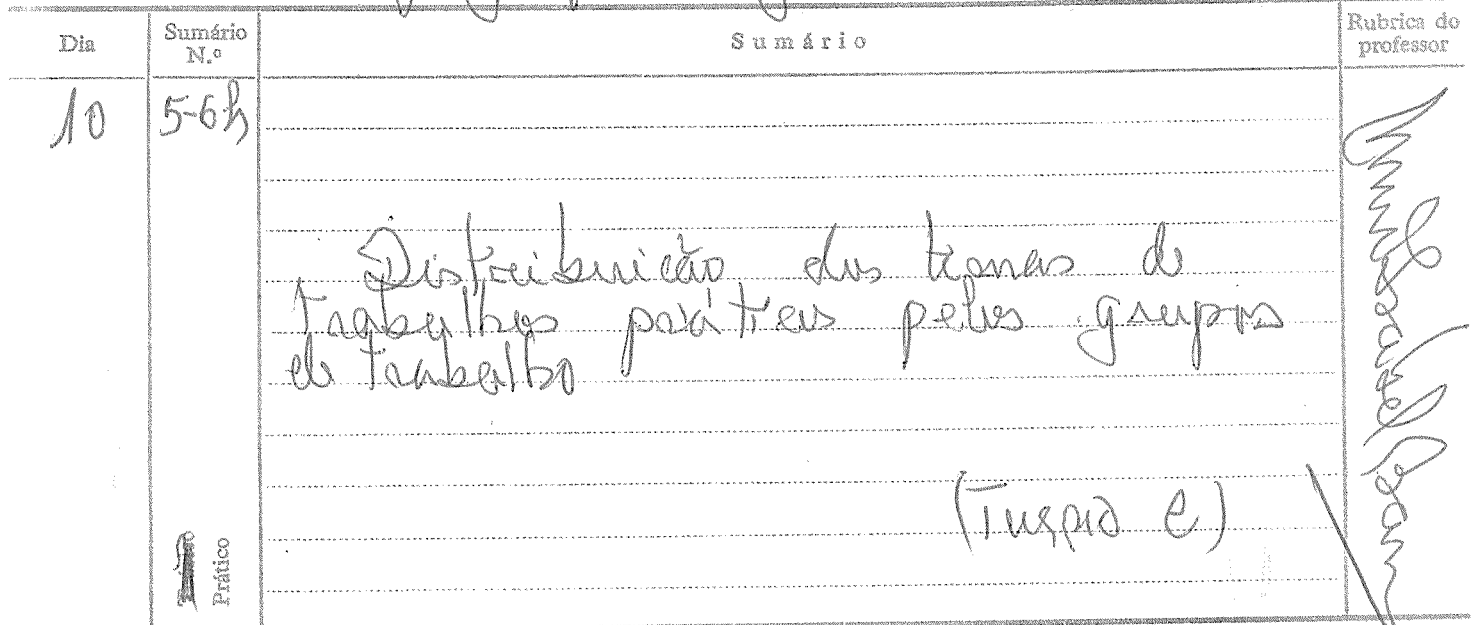 Dia Sumário N.º Sumário Rubrica do professor
10 5-6h
Distribuição dos temas de
trabalhos práticos pelos grupos
de trabalho
(Turma C)
Prático